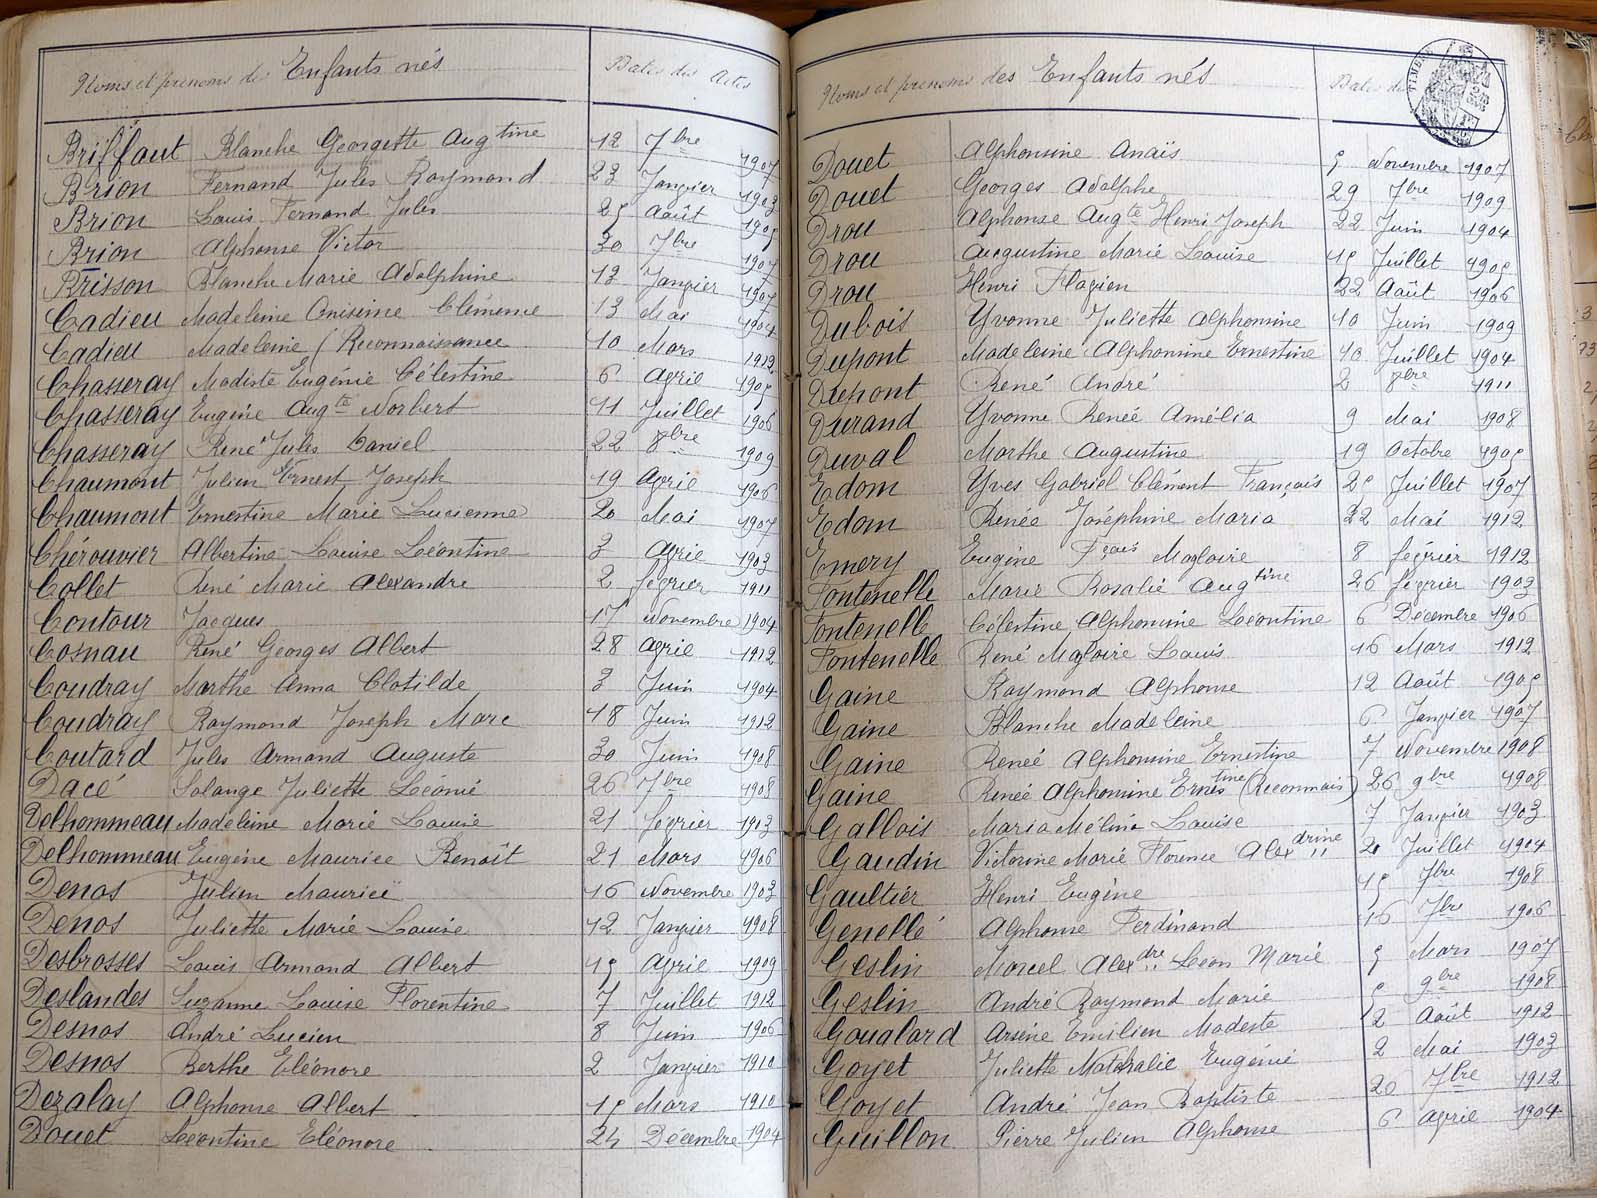 Noms et prénoms des Enfants nés Dates des Actes
Briffaut Blanche Georgette Augtine 12 7bre 1907
Brion Fernand Jules Raymond 23 Janvier 1903
Brion Louis Fernand Jules 25 Août 1905
Brion Alphonse Victor 30 7bre 1907
Brisson Blanche Marie Adolphine 13 Janvier 1907
Cadieu Madeleine Onisime Clémence 13 Mai 1904
Cadieu Madeleine (Reconnaissance 10 Mars 1912
Chasseray Modiste Eugénie Célestine 6 Avril 1905
Chasseray Eugène Augte Norbert 11 Juillet 1906
Chasseray René Jules Daniel 22 8bre 1909
Chaumont Julien Ernest Joseph 19 Avril 1906
Chaumont Ernestine Marie Lucienne 20 Mai 1907
Chérouvier Albertine Louise Léontine 3 Avril 1903
Collet René Marie Alexandre 2 février 1911
Contour Jacques 17 Novembre 1904
Cosnau René Georges Albert 28 Avril 1912
Coudray Marthe Anna Clotilde 3 Juin 1904
Coudray Raymond Joseph Marc 18 Juin 1912
Coutard Jules Armand Auguste 30 Juin 1908
Dacé Solange Juliette Léonie 26 7bre 1908
Delhommeau Madeleine Marie Louise 21 février 1903
Delhommeau Eugène Maurice Benoît 21 Mars 1906
Denos Julien Maurice 16 Novembre 1903
Denos Juliette Marie Louise 12 Janvier 1908
Desbrosses Louis Armand Albert 15 Avril 1909
Deslandes Suzanne Louise Florentine 7 Juillet 1912
Desnos André Lucien 8 Juin 1906
Desnos Berthe Eléonore 2 Janvier 1910
Dezalay Alphonse Albert 15 Mars 1910
Douet Léontine Eléonore 24 Décembre 1904
Noms et prénoms des Enfants nés Dates de
Douet Alphonsine Anaïs 5 Novembre 1907
Douet Georges Adolphe 29 7bre 1909
Drou Alphonse Augte Henri Joseph 22 Juin 1904
Drou Augustine Marie Louise 15 Juillet 1905
Drou Henri Flavien 22 Août 1906
Dubois Yvonne Juliette Alphonsine 10 Juin 1909
Dupont Madeleine Alphonsine Ernestine 10 Juillet 1904
Dupont René André 2 8bre 1911
Durand Yvonne Renée Amélia 9 Mai 1908
Duval Marthe Augustine 19 Octobre 1905
Edom Yves Gabriel Clément François 25 Juillet 1907
Edom Renée Joséphine Maria 22 Mai 1912
Emery Eugène Fçois Magloire 8 février 1912
Fontenelle Marie Rosalie Augtine 26 février 1903
Fontenelle Célestine Alphonsine Léontine 6 Décembre 1906
Fontenelle René Magloire Louis 16 Mars 1912
Gaine Raymond Alphonse 12 Août 1905
Gaine Blanche Madeleine 6 Janvier 1907
Gaine Renée Alphonsine Ernestine 7 Novembre 1908
Gaine Renée Alphonsine Ernestine (Reconnais) 26 9bre 1908
Gallois Maria Mélina Louise 7 Janvier 1903
Gaudin Victorine Marie Florence Alexdrine 2 Juillet 1904
Gaultier Henri Eugène 15 7bre 1908
Genellé Alphonse Ferdinand 16 7bre 1906
Geslin Marcel Alexdre Léon Marie 5 Mars 1907
Geslin André Raymond Marie 9bre 1908
Goualard Arsène Emilien Modeste 12 Août 1912
Goyet Juliette Nathalie Eugénie 2 Mai 1903
Goyet André Jean Baptiste 20 7bre 1912
Guillon Pierre Julien Alphonse 6 Avril 1904